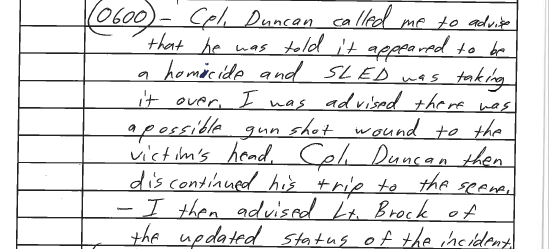 0600 - Cpl. Duncan called me to advise
that he was told it appeared to be
a homicide and SLED was taking
it over. I was advised there was
a possible gun shot wound to the
victim's head. Cpl. Duncan then
discontinued his trip to the scene.
- I then advised Lt. Brock of
the updated status of the incident.